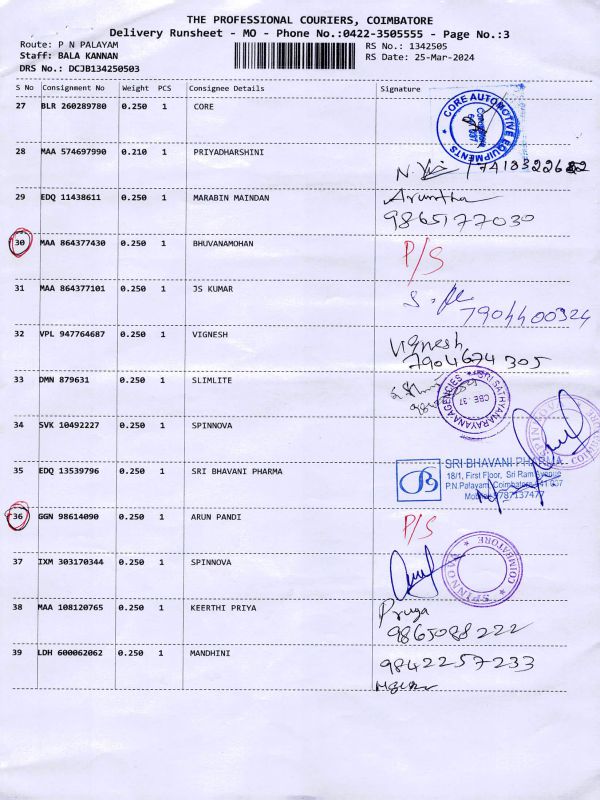 THE PROFESSIONAL COURIERS, COIMBATORE
Delivery Runsheet - MO - Phone No.:0422-3505555 - Page No.:3
Route: P N PALAYAM
RS No.: 1342505
Staff: BALA KANNAN
RS Date: 25-Mar-2024
DRS No.: DCJB134250503
S No Consignment No Weight PCS Consignee Details Signature
27 BLR 260289780 0.250 1 CORE
CORE AUTOMOTIVE EQUIPMENTS
28 MAA 574697990 0.210 1 PRIYADHARSHINI
29 EDQ 11438611 0.250 1 MARABIN MAINDAN Arumtha
9865177030
30 MAA 864377430 0.250 1 BHUVANAMOHAN P/S
31 MAA 864377101 0.250 1 JS KUMAR
7904400324
32 VPL 947764687 0.250 1 VIGNESH Vignesh
7904674305
33 DMN 879631 0.250 1 SLIMLITE
SRI SATHYANARAYANA AGENCIES
CBE. 37
34 SVK 10492227 0.250 1 SPINNOVA
35 EDQ 13539796 0.250 1 SRI BHAVANI PHARMA
SRI BHAVANI PHARMA
18/1, First Floor, Sri Ram Avenue
P.N.Palayam, Coimbatore-641 037
36 GGN 98614090 0.250 1 ARUN PANDI P/S
37 IXM 303170344 0.250 1 SPINNOVA
COIMBATORE
38 MAA 108120765 0.250 1 KEERTHI PRIYA Priya
9865088222
39 LDH 600062062 0.250 1 MANDHINI 9842257233